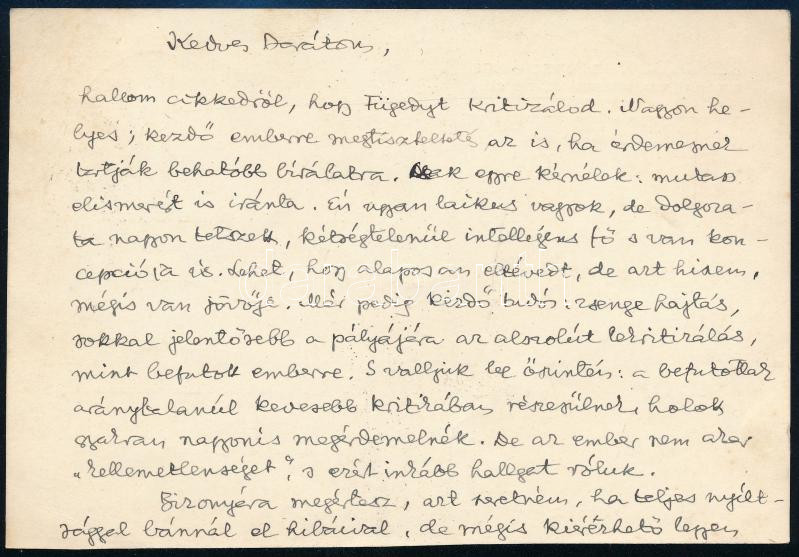 Kedves Barátom,
hallom cikkedről, hogy Fügedyt kritizálod. Nagyon he-
lyes; kezdő emberre megtiszteltetés az is, ha érdemesnek
tartják behatóbb bírálatra. Csak egyre kérnélek: mutass
elismerést is iránta. Én ugyan laikus vagyok, de dolgoza-
ta nagyon tetszett, kétségtelenül intelligens fő s van kon-
cepciója is. Lehet, hogy alaposan eltévedt, de azt hiszem,
mégis van jövője. Már pedig kezdő tudós: zsenge hajtás,
sokkal jelentősebb a pályájára az abszolút lekritizálás,
mint befutott emberre. S valljuk be őszintén: a befutottak
aránytalanúl kevesebb kritikában részesülnek, holott
sokszor nagyonis megérdemelnék. De az ember nem akar
„kellemetlenséget", s ezért inkább hallgat róluk.
Bizonyára megértesz, azt szeretném, ha teljes nyílt-
sággal bánnál el hibáival, de mégis kiérezhető legyen